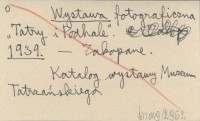 Wystawa fotograficzna
„Tatry i Podhale".
1939. — Zakopane.
Katalog wystawy Muzeum
Tatrzańskiego